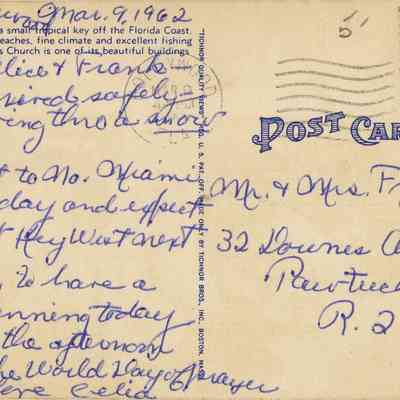 Mar. 9, 1962
a small tropical key off the Florida Coast.
beaches, fine climate and excellent fishing
s Church is one of its beautiful buildings
lice & Frank—
rived safely
ing thro a snow
t to No. Miami
day and expect
t Key West next
To have a
nning today
the afternoon
he World Day of prayer
Celia
"TICHNOR QUALITY VIEWS," REG. U. S. PAT. OFF. MADE ONLY BY TICHNOR BROS., INC., BOSTON, MASS.
POST CAR
Mr. & Mrs. F
32 Downes A
Pawtuc
R. I